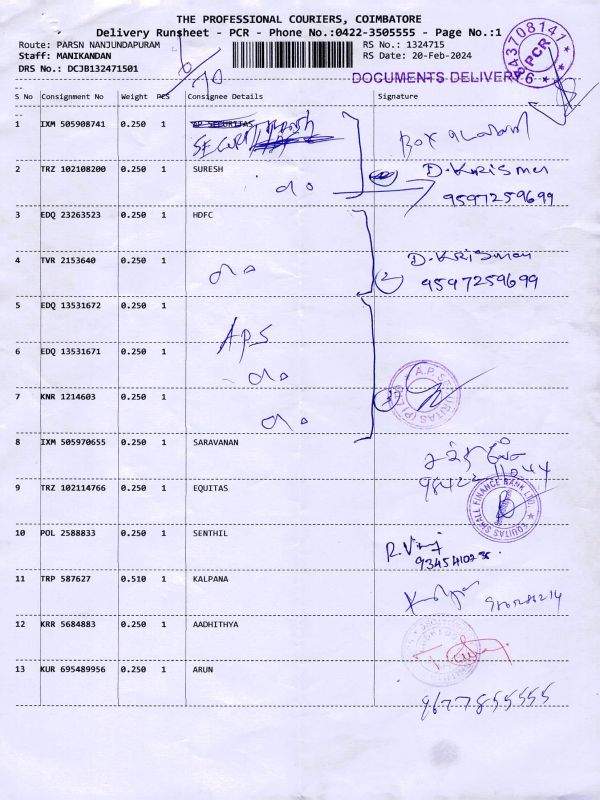 THE PROFESSIONAL COURIERS, COIMBATORE
Delivery Runsheet - PCR - Phone No.:0422-3505555 - Page No.:1
Route: PARSN NANJUNDAPURAM
RS No.: 1324715
Staff: MANIKANDAN
RS Date: 20-Feb-2024
DRS No.: DCJB132471501
DOCUMENTS DELIVERY
PCR
S No Consignment No Weight PCS Consignee Details Signature
1 IXM 505908741 0.250 1 AP SECURITAS
SECURITAS
2 TRZ 102108200 0.250 1 SURESH D. KRISHNA
do 9597259699
3 EDQ 23263523 0.250 1 HDFC
4 TVR 2153640 0.250 1 D. KRISHNA
do 2 9597259699
5 EDQ 13531672 0.250 1
APS
6 EDQ 13531671 0.250 1
do A.P. SECURITAS (P) LTD
7 KNR 1214603 0.250 1
do
8 IXM 505970655 0.250 1 SARAVANAN
9 TRZ 102114766 0.250 1 EQUITAS EQUITAS SMALL FINANCE BANK LTD.
10 POL 2588833 0.250 1 SENTHIL
11 TRP 587627 0.510 1 KALPANA
12 KRR 5684883 0.250 1 AADHITHYA
13 KUR 695489956 0.250 1 ARUN
9677855555